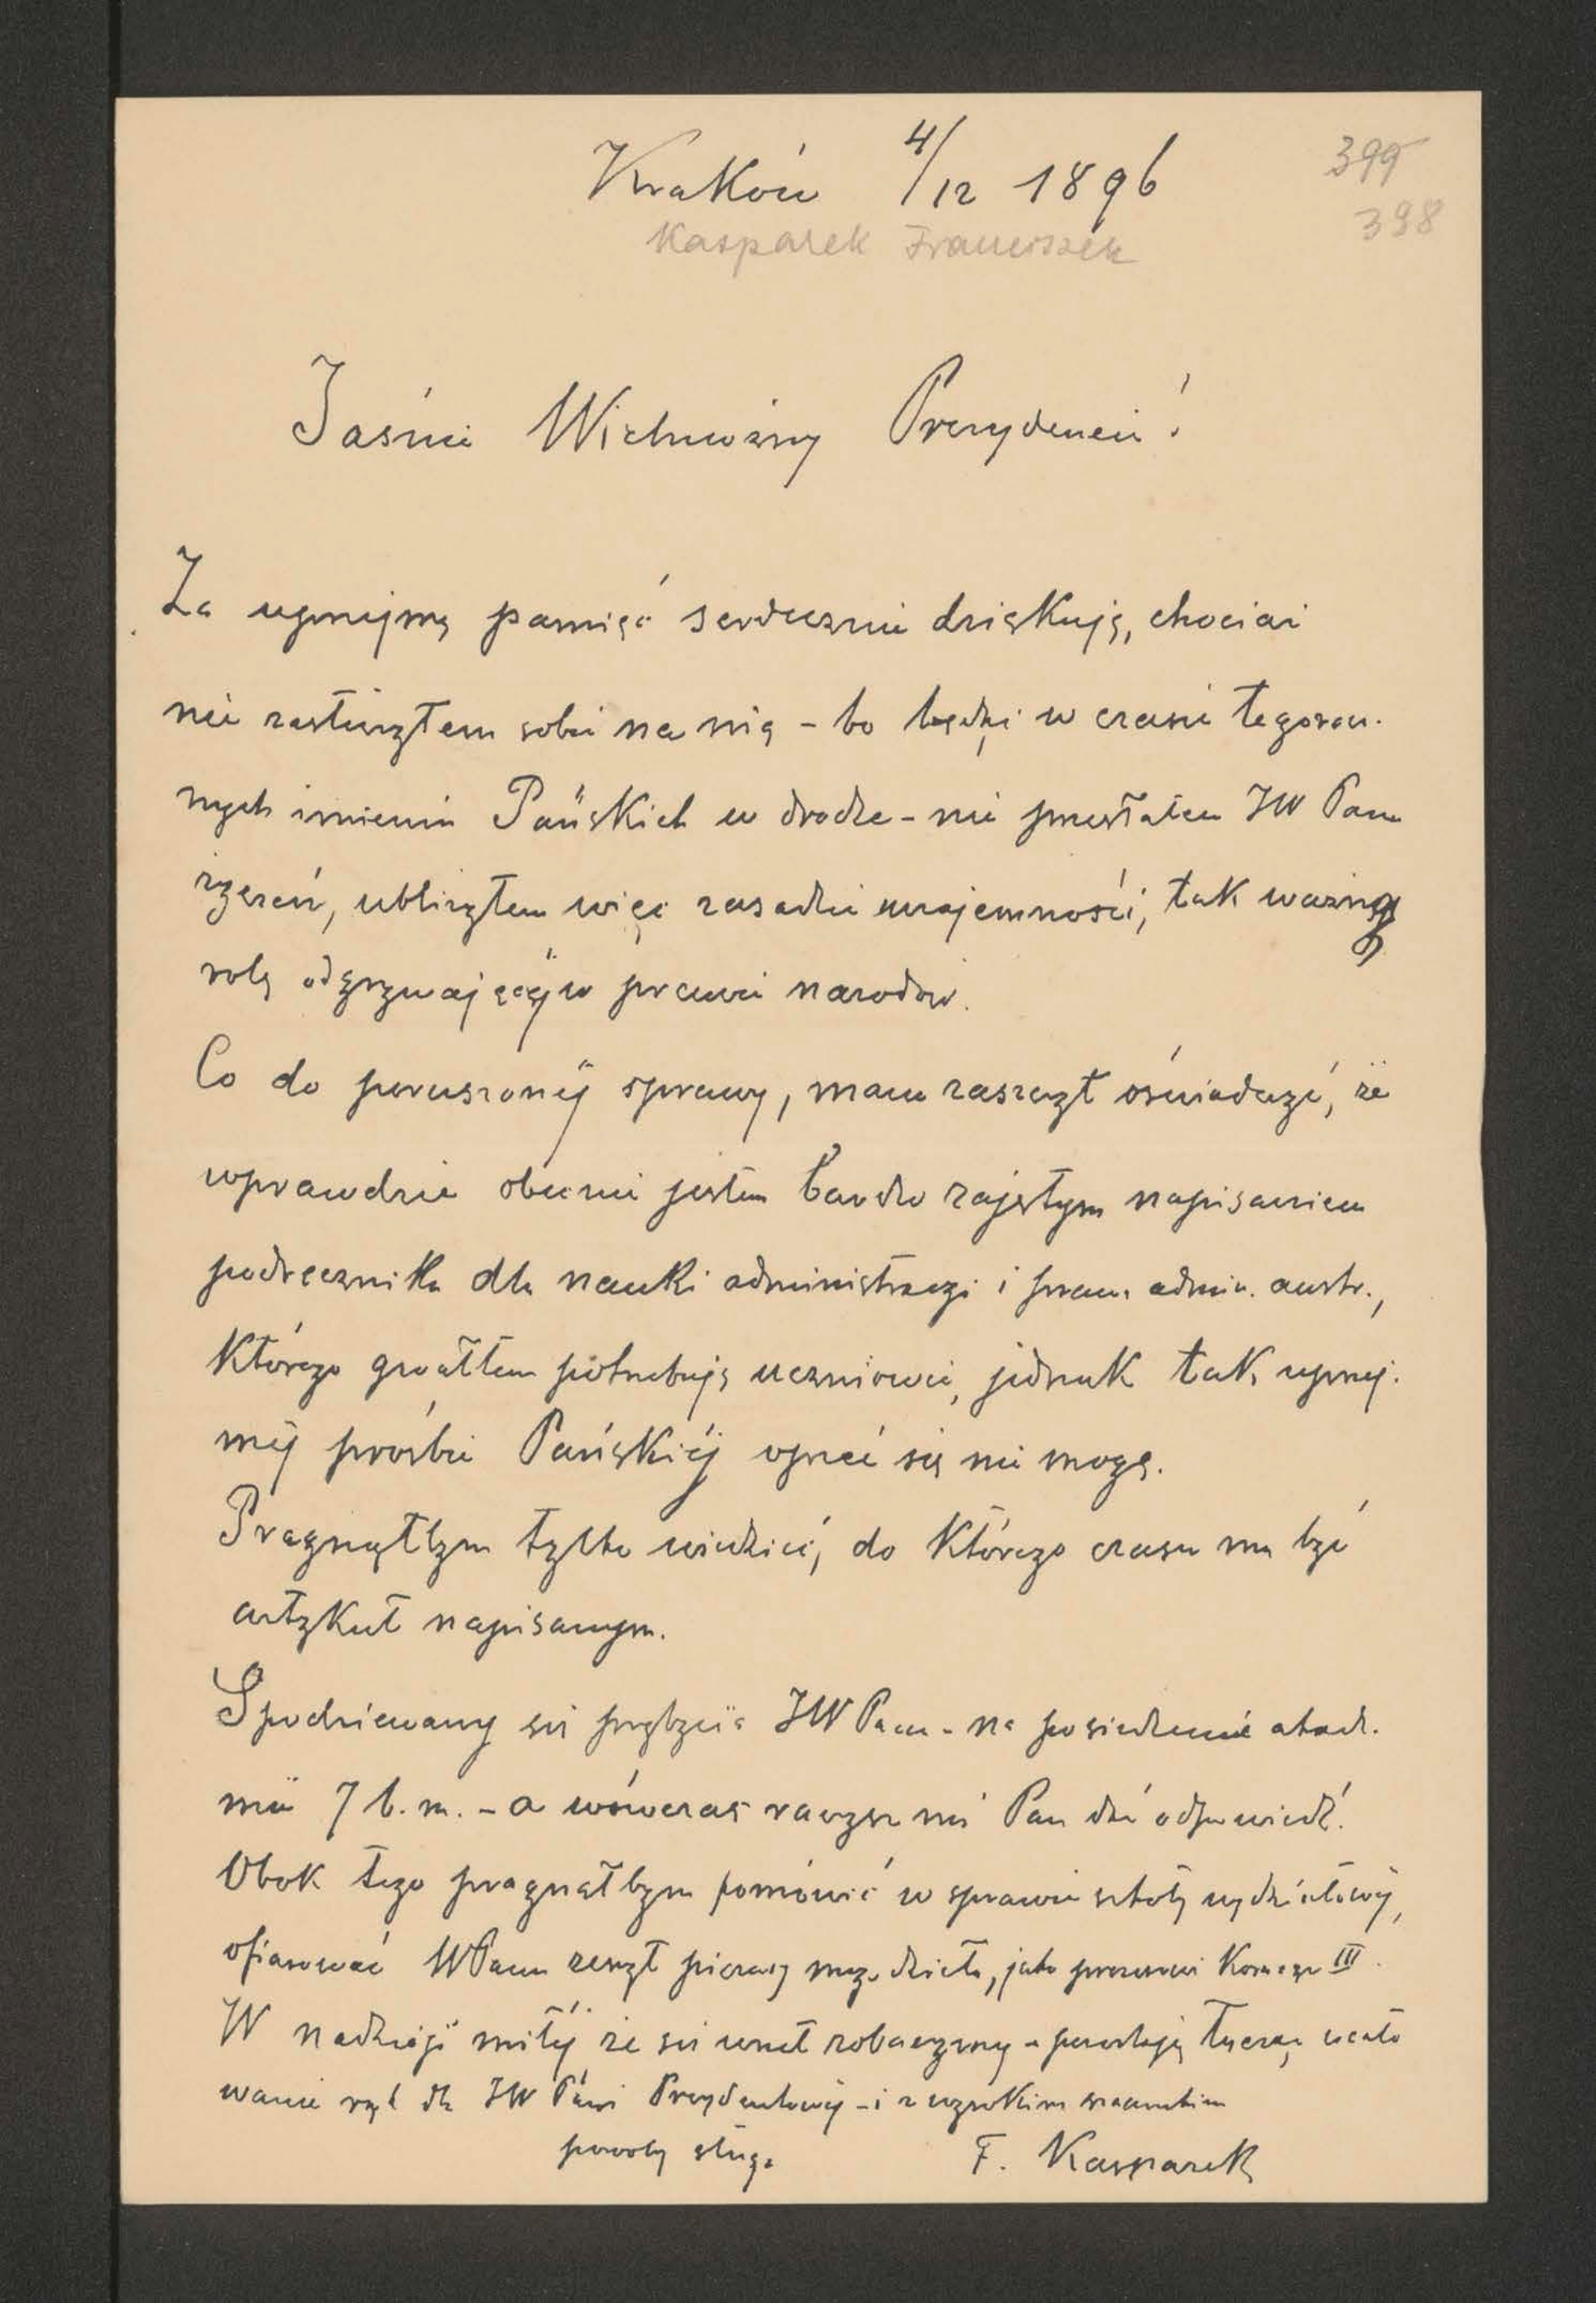 Kraków 4/12 1896
399
398
Kasparek Franciszek
Jaśnie Wielmożny Prezydencie!
Za uprzejmą pamięć serdecznie dziękuję, chociaż
nie zasłużyłem sobie na nią – bo będąc w czasie tegorocz-
nych imienin Pańskich w drodze – nie przesłałem JW Panu
życzeń, ubliżyłem więc zasadzie wzajemności, tak ważną
rolę odgrywającéj w prawie narodów.
Co do poruszonéj sprawy, mam zaszczyt oświadczyć, że
wprawdzie obecnie jestem bardzo zajętym napisaniem
podręcznika dla nauki administracyi i praw. admin. austr.,
którego gwałtem potrzebują uczniowie, jednak tak uprzej-
méj prośbie Pańskiéj oprzeć się nie mogę.
Pragnąłbym tylko wiedzieć, do którego czasu ma być
artykuł napisanym.
Spodziewamy się przybycia JW Pana – na posiedzenie akad.
7 b.m. – a wówczas raczysz mi Pan dać odpowiedź.
Obok tego pragnąłbym pomówić w sprawie szkoły wydziałowéj,
ofiarować WPanu zeszyt pierwszy mego dzieła, jako prezesowi III.
W nadzieji miłéj że się wnet zobaczymy – przesyłając ucało
wanie rąk dla JW Pani Prezydentowéj – i z wysokim szacunkiem
powolny sługa F. Kasparek